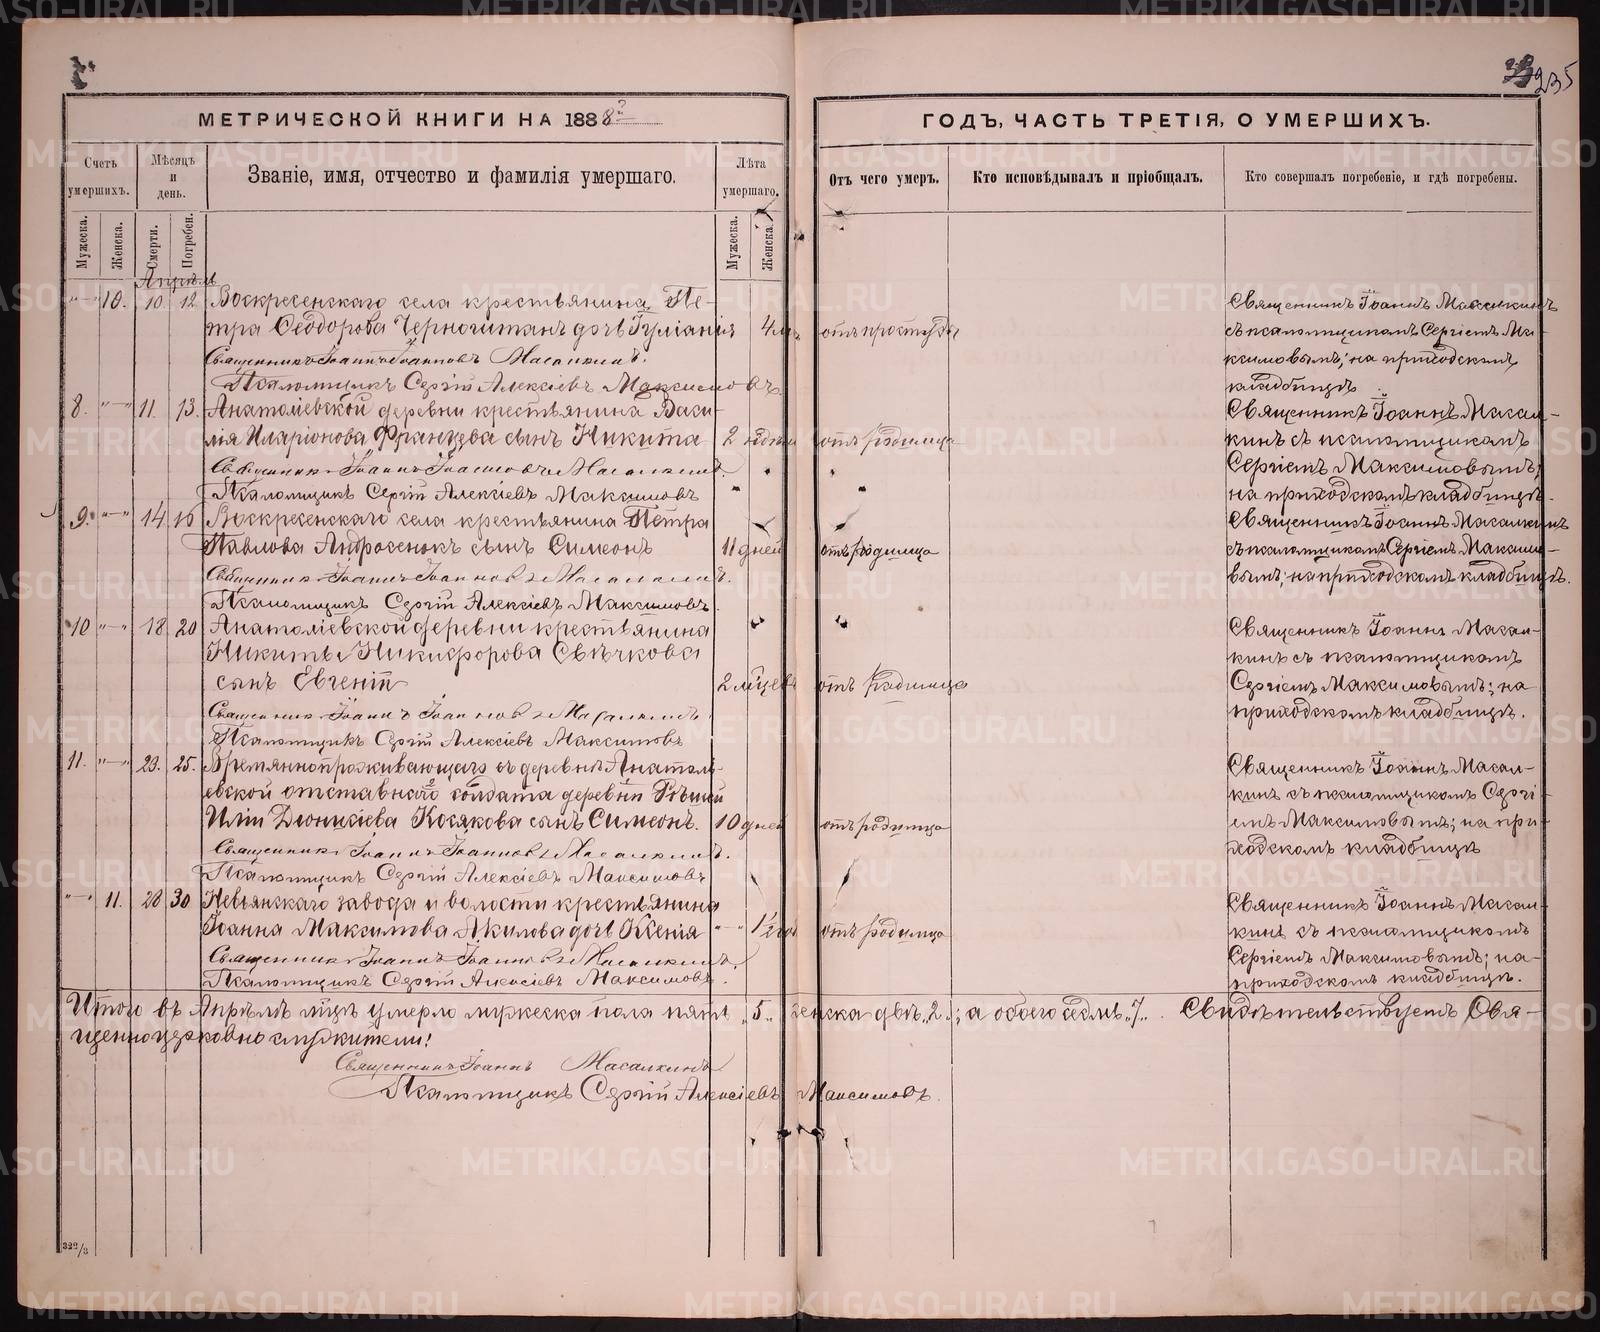 235
МЕТРИЧЕСКОЙ КНИГИ НА 1888
ГОДЪ, ЧАСТЬ ТРЕТІЯ, О УМЕРШИХЪ.
Счетъ умершихъ.
Мѣсяцъ и день.
Званіе, имя, отчество и фамилія умершаго.
Лѣта умершаго.
Отъ чего умеръ.
Кто исповѣдывалъ и пріобщалъ.
Кто совершалъ погребеніе, и гдѣ погребены.
Мужеска.
Женска.
Смерти.
Погребен.
Мужеска.
Женска.
Апрѣль
"—" 10. 10. 12. Воскресенскаго села крестьянина Пе-
тра Ѳеодорова дочь Іуліанія 4 отъ простуды
Священникъ Іоаннъ Іоанновъ Масалкинъ.
Псаломщикъ Сергій Алексіевъ Максимовъ
Священникъ Іоаннъ Масалкинъ
съ псаломщикомъ Сергіемъ Ма-
ксимовымъ; на приходскомъ
кладбищѣ
8. "—" 11. 13. Анатоліевской деревни крестьянина Васи-
лія Иларіонова Францева сынъ Никита 2 отъ родимца
Священникъ Іоаннъ Іоанновъ Масалкинъ
Псаломщикъ Сергій Алексіевъ Максимовъ
Священникъ Іоаннъ Масал-
кинъ съ псаломщикомъ
Сергіемъ Максимовымъ;
на приходскомъ кладбищѣ.
9. "—" 14 16 Воскресенскаго села крестьянина Петра
Павлова Андросенокъ сынъ Симеонъ 11 дней отъ родимца
Священникъ Іоаннъ Іоанновъ Масалкинъ.
Псаломщикъ Сергій Алексіевъ Максимовъ.
Священникъ Іоаннъ Масалкинъ
съ псаломщикомъ Сергіемъ Максимо-
вымъ; на приходскомъ кладбищѣ.
10 "—" 18. 20 Анатоліевской деревни крестьянина
Никиты Никифорова Свѣчкова
сынъ Евгеній 2 мѣсяц отъ родимца
Священникъ Іоаннъ Іоанновъ Масалкинъ.
Псаломщикъ Сергій Алексіевъ Максимовъ
Священникъ Іоаннъ Масал-
кинъ съ псаломщикомъ
Сергіемъ Максимовымъ; на
приходскомъ кладбищѣ.
11. "—" 23. 25. Временнопроживающаго въ деревнѣ Анатолі-
евской отставнаго солдата деревни
Иліи Діонисіева Косякова сынъ Симеонъ. 10 дней отъ родимца
Священникъ Іоаннъ Іоанновъ Масалкинъ.
Псаломщикъ Сергій Алексіевъ Максимовъ
Священникъ Іоаннъ Масал-
кинъ съ псаломщикомъ Сергі-
емъ Максимовымъ; на при-
ходскомъ кладбищѣ
"—" 11. 28 30 Невьянскаго завода и волости крестьянина
Іоанна Максимова Акилова дочь Ксенія "—" 1½ год отъ родимца
Священникъ Іоаннъ Іоанновъ Масалкинъ.
Псаломщикъ Сергій Алексіевъ Максимовъ.
Священникъ Іоаннъ Масал-
кинъ съ псаломщикомъ
Сергіемъ Максимовымъ; на
приходскомъ кладбищѣ.
Итого въ Апрѣлѣ мѣцѣ умерло мужеска пола пять „5„ женска двѣ „2„; а обоего седмь „7„. Свидѣтельствуемъ Свя-
щенноцерковнослужители:
Священникъ Іоаннъ Масалкинъ
Псаломщикъ Сергій Алексіевъ Максимовъ.
322/3
METRIKI.GASO-URAL.RU